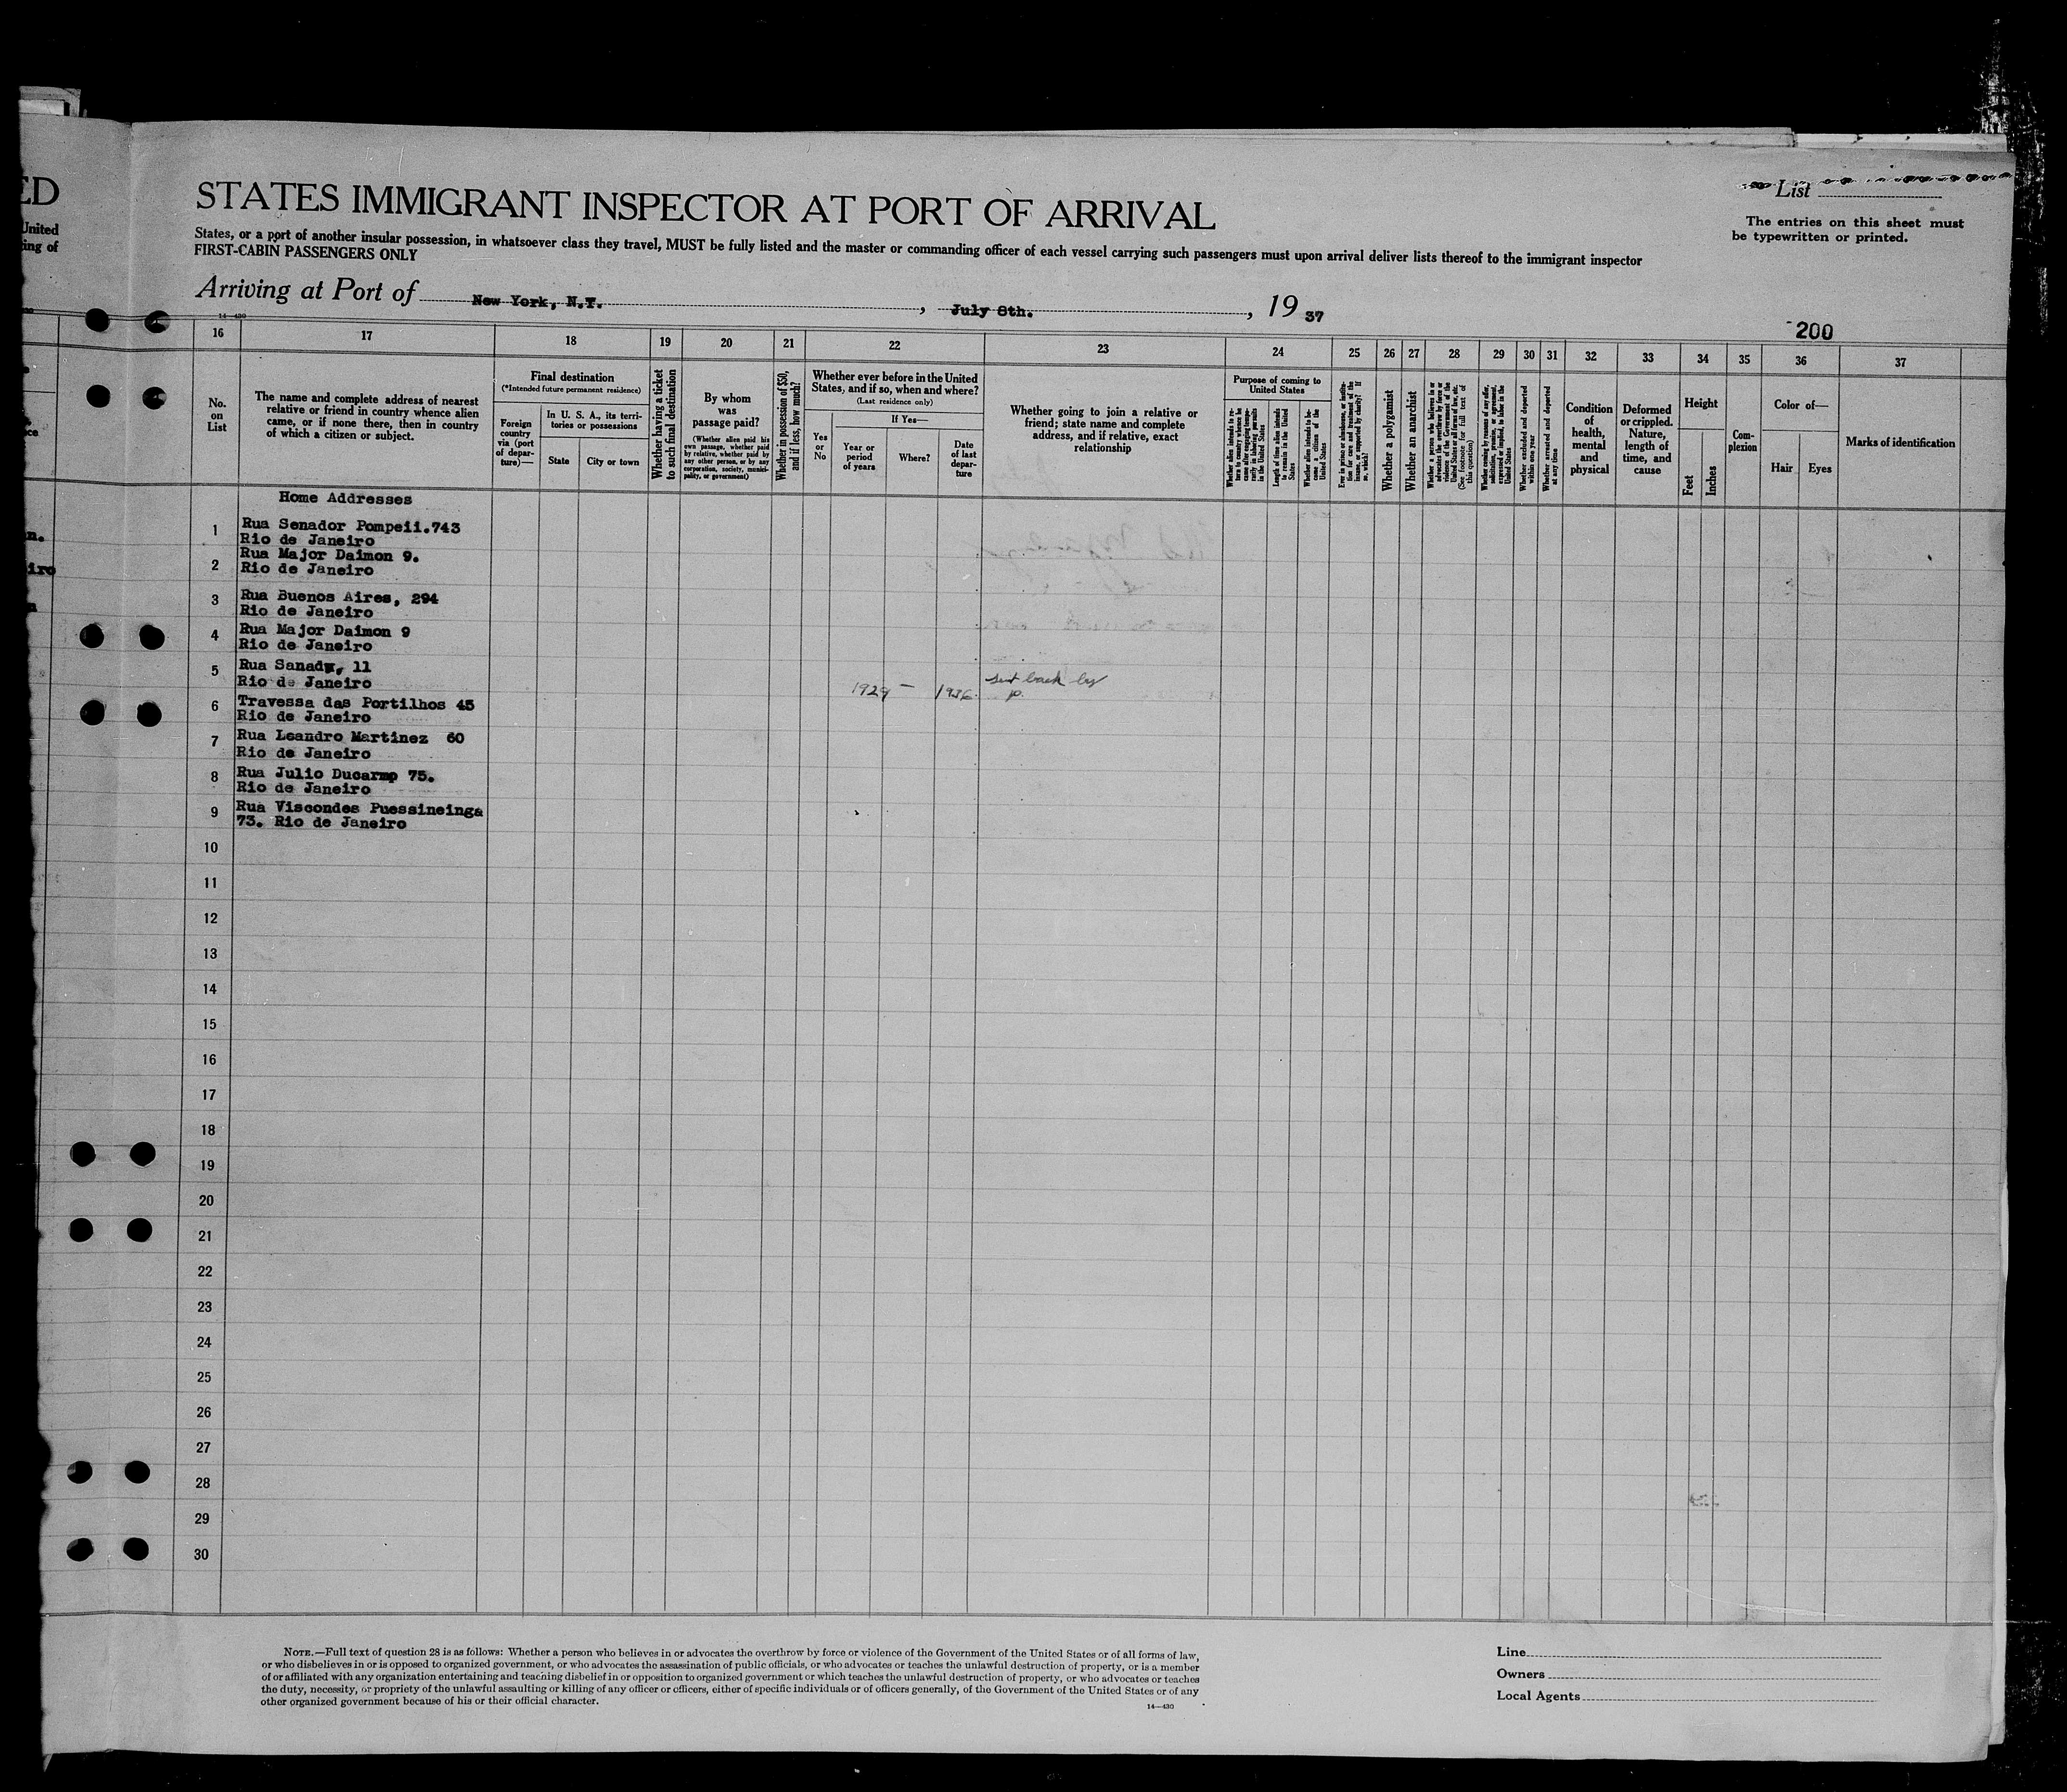 ED
United
ing of
STATES IMMIGRANT INSPECTOR AT PORT OF ARRIVAL
List
The entries on this sheet must
be typewritten or printed.
States, or a port of another insular possession, in whatsoever class they travel, MUST be fully listed and the master or commanding officer of each vessel carrying such passengers must upon arrival deliver lists thereof to the immigrant inspector
FIRST-CABIN PASSENGERS ONLY
Arriving at Port of New York, N.Y. , July 8th. , 19 37
14—430
200
16 17 18 19 20 21 22 23 24 25 26 27 28 29 30 31 32 33 34 35 36 37
No.
on
List
The name and complete address of nearest
relative or friend in country whence alien
came, or if none there, then in country
of which a citizen or subject.
Final destination
(*Intended future permanent residence)
Foreign
country
via (port
of depar-
ture)—
In U. S. A., its terri-
tories or possessions
State
City or town
Whether having a ticket
to such final destination
By whom
was
passage paid?
(Whether alien paid his
own passage, whether paid
by relative, whether paid by
any other person, or by any
corporation, society, munici-
pality, or government)
Whether in possession of $50,
and if less, how much?
Whether ever before in the United
States, and if so, when and where?
(Last residence only)
Yes
or
No
If Yes—
Year or
period
of years
Where?
Date
of last
depar-
ture
Whether going to join a relative or
friend; state name and complete
address, and if relative, exact
relationship
Purpose of coming to
United States
Whether alien intends to re-
turn to country whence he
came after engaging tempo-
rarily in laboring pursuits
in the United States
Length of time alien intends
to remain in the United
States
Whether alien intends to be-
come a citizen of the
United States
Ever in prison or almshouse, or institu-
tion for care and treatment of the
insane, or supported by charity? If
so, which?
Whether a polygamist
Whether an anarchist
Whether a person who believes in or
advocates the overthrow by force or
violence of the Government of the
United States or all forms of law, etc.
(See footnote for full text of
this question)
Whether coming by reason of any offer,
solicitation, promise, or agreement,
expressed or implied, to labor in the
United States
Whether excluded and deported
within one year
Whether arrested and deported
at any time
Condition
of
health,
mental
and
physical
Deformed
or crippled.
Nature,
length of
time, and
cause
Height
Feet
Inches
Com-
plexion
Color of—
Hair
Eyes
Marks of identification
Home Addresses
1 Rua Senador Pompeii.743
Rio de Janeiro
2 Rua Major Daimon 9.
Rio de Janeiro
3 Rua Buenos Aires, 294
Rio de Janeiro
4 Rua Major Daimon 9
Rio de Janeiro
5 Rua Sanadw, 11
Rio de Janeiro
1929 — 1936. sent back by
6 Travessa das Portilhos 45
Rio de Janeiro
7 Rua Leandro Martinez 60
Rio de Janeiro
8 Rua Julio Ducarmp 75.
Rio de Janeiro
9 Rua Viscondes Puessineinga
73. Rio de Janeiro
10
11
12
13
14
15
16
17
18
19
20
21
22
23
24
25
26
27
28
29
30
NOTE.—Full text of question 28 is as follows: Whether a person who believes in or advocates the overthrow by force or violence of the Government of the United States or of all forms of law,
or who disbelieves in or is opposed to organized government, or who advocates the assassination of public officials, or who advocates or teaches the unlawful destruction of property, or is a member
of or affiliated with any organization entertaining and teaching disbelief in or opposition to organized government or which teaches the unlawful destruction of property, or who advocates or teaches
the duty, necessity, or propriety of the unlawful assaulting or killing of any officer or officers, either of specific individuals or of officers generally, of the Government of the United States or of any
other organized government because of his or their official character.
14—430
Line
Owners
Local Agents